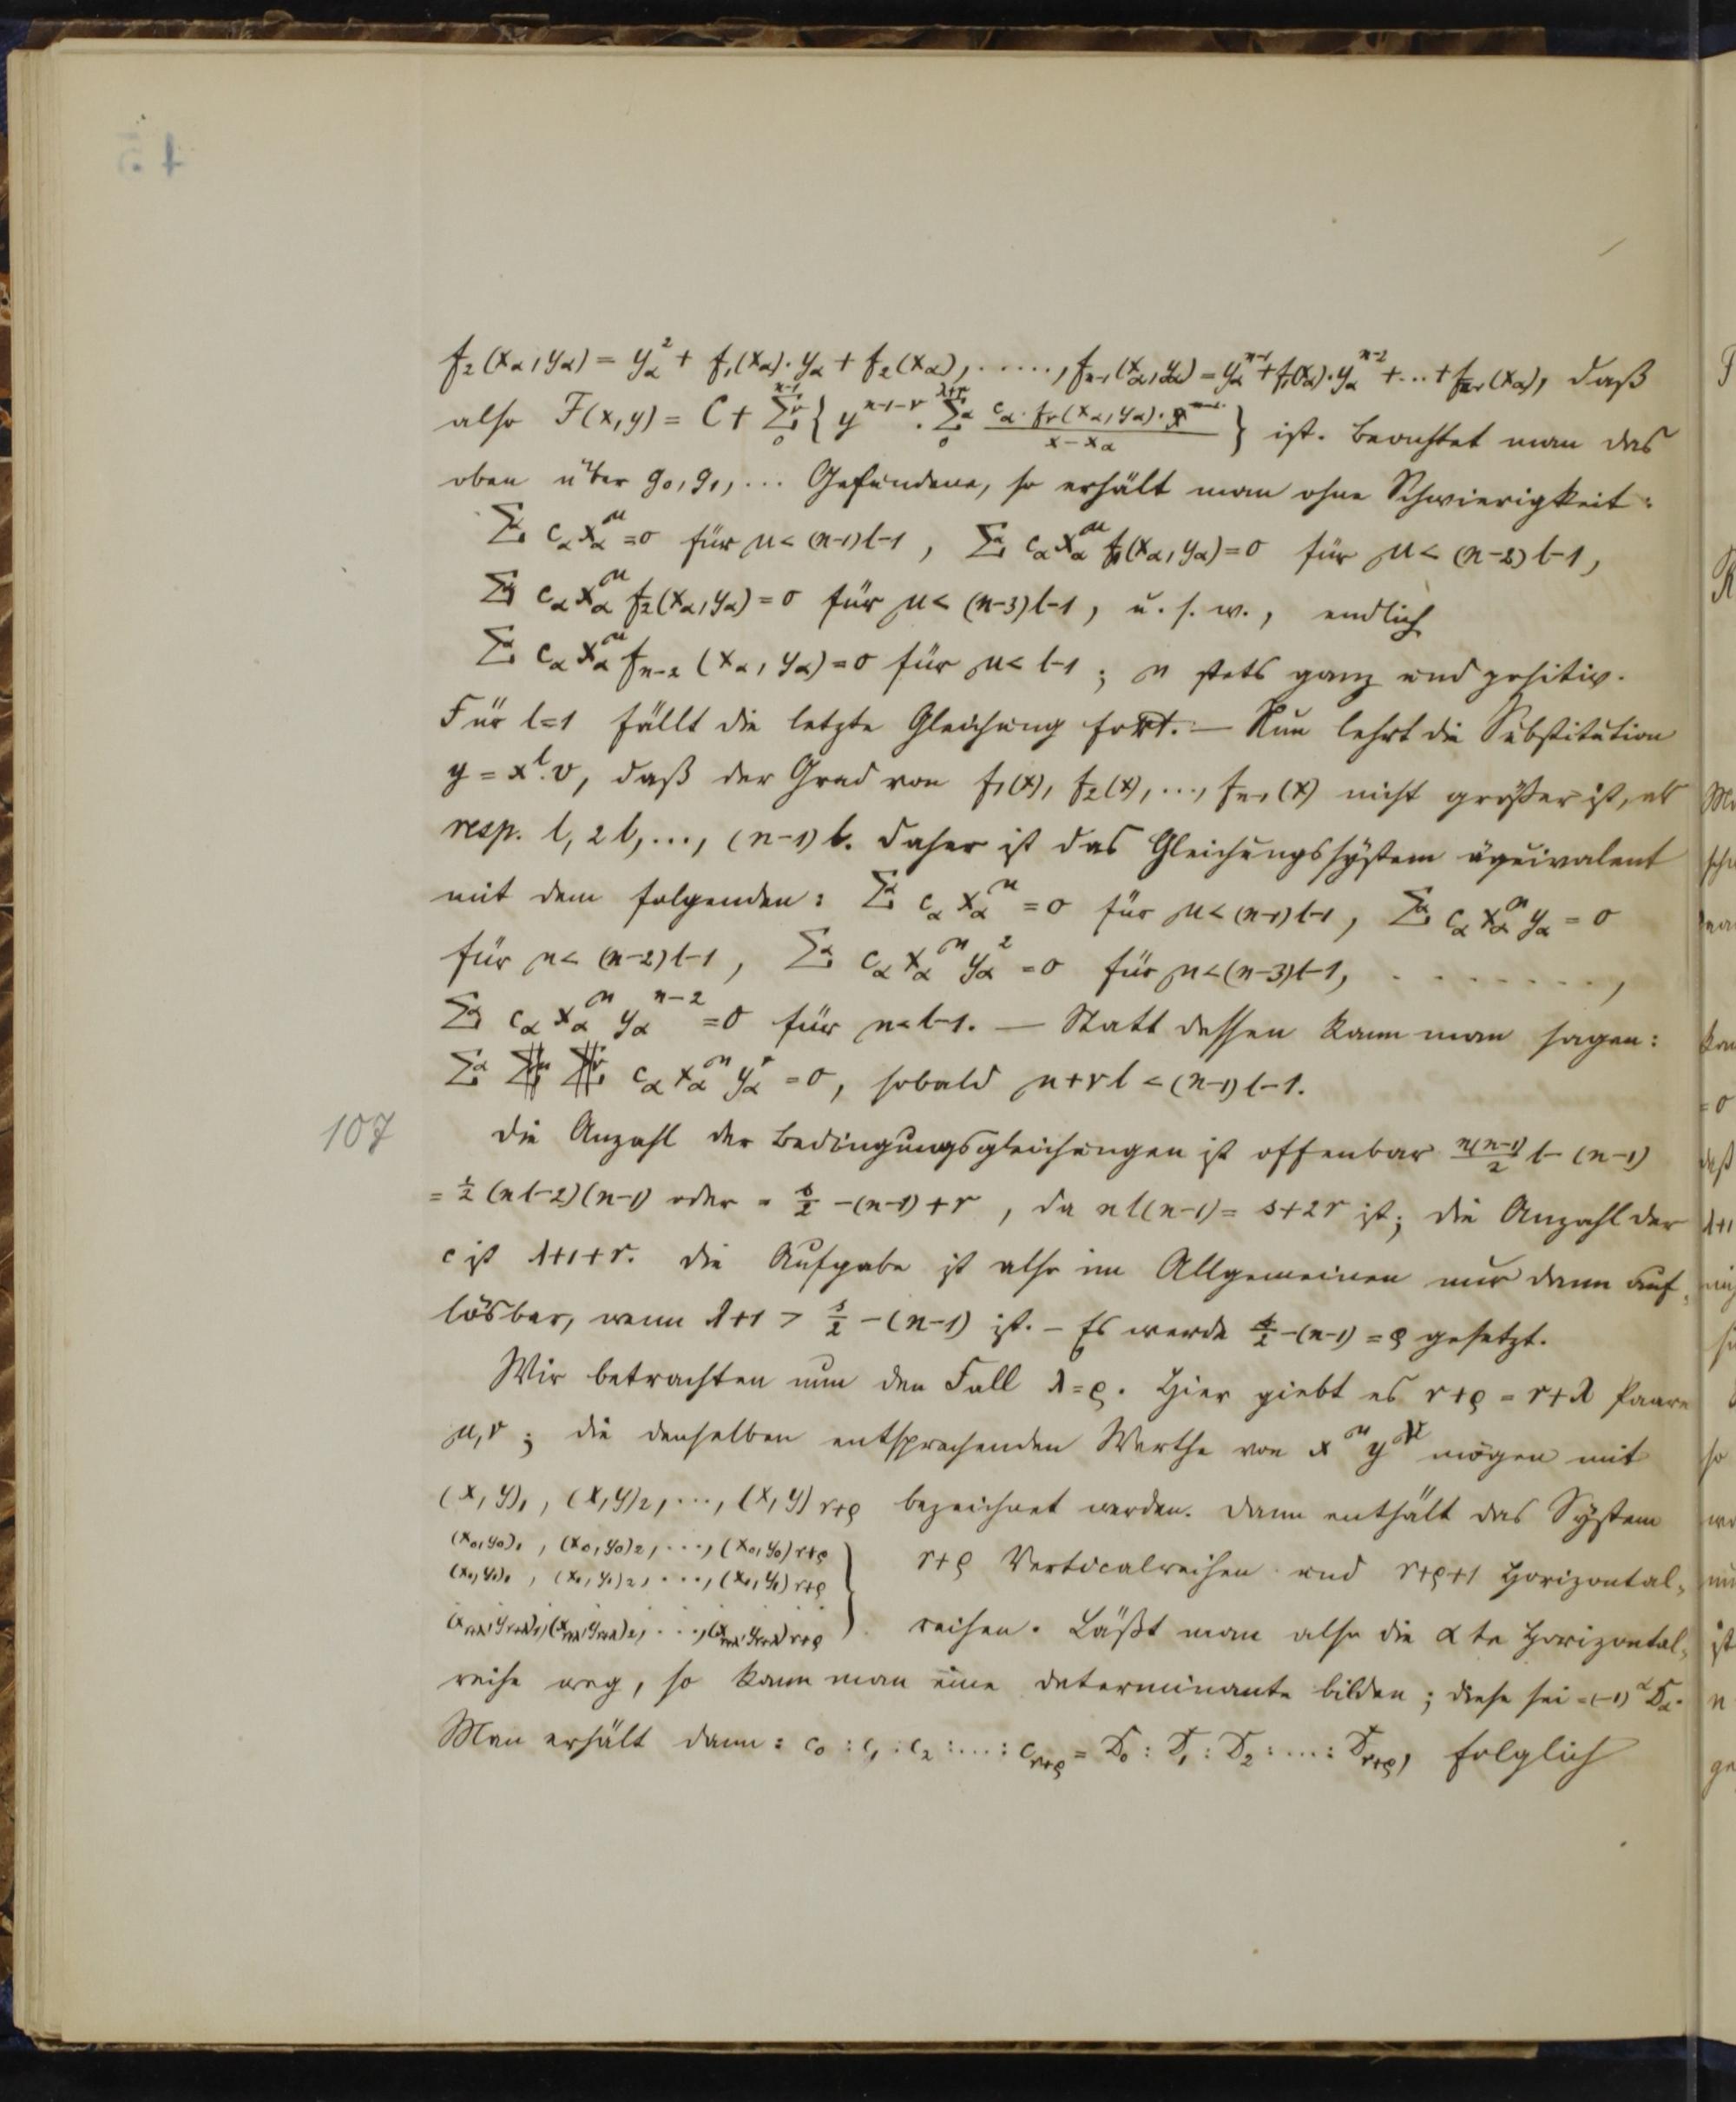 f₂(x_α, y_α) = y_α² + f₁(x_α)·y_α + f₂(x_α), ....., f_{n-1}(x_α, y_α) = y_α^{n-1} + f₁(x_α)·y_α^{n-2} + ... + f_{n-1}(x_α), daß
also F(x,y) = C + Σ_0^{n-1} ν { y^{n-1-ν} · Σ_0^{λ+r} α c_α·f_ν(x_α, y_α) / (x - x_α) } ist. Beachtet man das
oben über g₀, g₁, ... Gefundene, so erhält man ohne Schwierigkeit:
Σ c_α x_α^μ = 0 für μ < (n-1)l-1, Σ c_α x_α^μ f₁(x_α, y_α) = 0 für μ < (n-2)l-1,
Σ c_α x_α^μ f₂(x_α, y_α) = 0 für μ < (n-3)l-1, u. s. w., endlich
Σ c_α x_α^μ f_{n-2}(x_α, y_α) = 0 für μ < l-1; μ stets ganz und positiv.
Für l=1 fällt die letzte Gleichung fort. — Nun lehrt die Substitution
y = x^l·v, daß der Grad von f₁(x), f₂(x), ..., f_{n-1}(x) nicht größer ist, als
resp. l, 2l, ..., (n-1)l. Daher ist das Gleichungssystem äquivalent
mit dem folgenden: Σ c_α x_α^μ = 0 für μ < (n-1)l-1, Σ c_α x_α^μ y_α = 0
für μ < (n-2)l-1, Σ c_α x_α^μ y_α² = 0 für μ < (n-3)l-1, ........,
Σ c_α x_α^μ y_α^{n-2} = 0 für μ < l-1. — Statt dessen kann man sagen:
Σ c_α x_α^μ y_α^ν = 0, sobald μ+νl < (n-1)l-1.
107 Die Anzahl der Bedingungsgleichungen ist offenbar n(n-1)/2 l - (n-1)
= ½(nl-2)(n-1) oder = s/2 - (n-1) + r, da nl(n-1) = s+2r ist; die Anzahl der
c ist λ+1+r. Die Aufgabe ist also im Allgemeinen nur dann auf-
lösbar, wenn λ+1 > s/2 - (n-1) ist. — Es werde s/2 - (n-1) = ρ gesetzt.
Wir betrachten nun den Fall λ=ρ. Hier giebt es r+ρ = r+λ Paare
μ, ν; die denselben entsprechenden Werthe von x^μ y^ν mögen mit
(x,y)₁, (x,y)₂, ..., (x,y)_{r+ρ} bezeichnet werden. Dann enthält das System
(x₀,y₀)₁, (x₀,y₀)₂, ..., (x₀,y₀)_{r+ρ}
(x₁,y₁)₁, (x₁,y₁)₂, ..., (x₁,y₁)_{r+ρ} } r+ρ Verticalreihen und r+ρ+1 Horizontal-
(x_{r+λ},y_{r+λ})₁, (x_{r+λ},y_{r+λ})₂, ..., (x_{r+λ},y_{r+λ})_{r+ρ} reihen. Läßt man also die αte Horizontal-
reihe weg, so kann man eine Determinante bilden; diese sei = (-1)^α D_α.
Man erhält dann: c₀ : c₁ : c₂ : ... : c_{r+ρ} = D₀ : D₁ : D₂ : ... : D_{r+ρ}, folglich